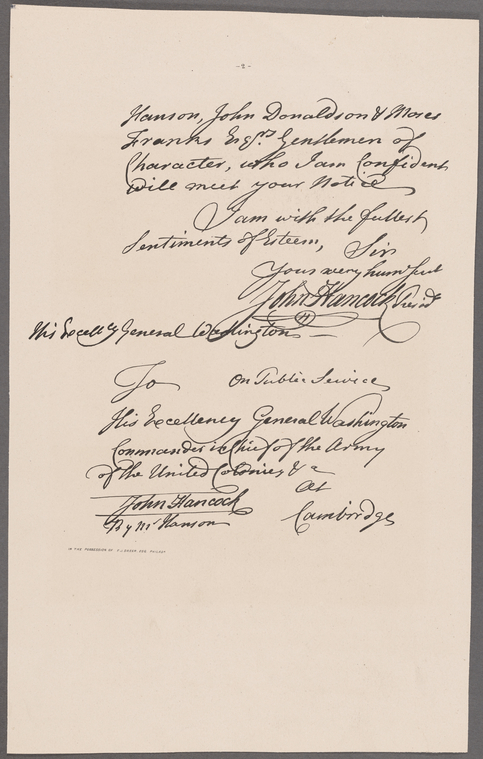 -2-
Hanson, John Donaldson & Moses
Franks Esqrs. Gentlemen of
Character, who I am Confident
will meet your Notice
I am with the fullest
Sentiments of Esteem,
Sir
Your very hum Sert
John Hancock Presidt
His Excelly General Washington
To
On Public Service
His Excellency General Washington
Commander in Chief of the Army
of the United Colonies, &c
At
John Hancock
Cambridge
By Mr Hanson
IN THE POSSESSION OF